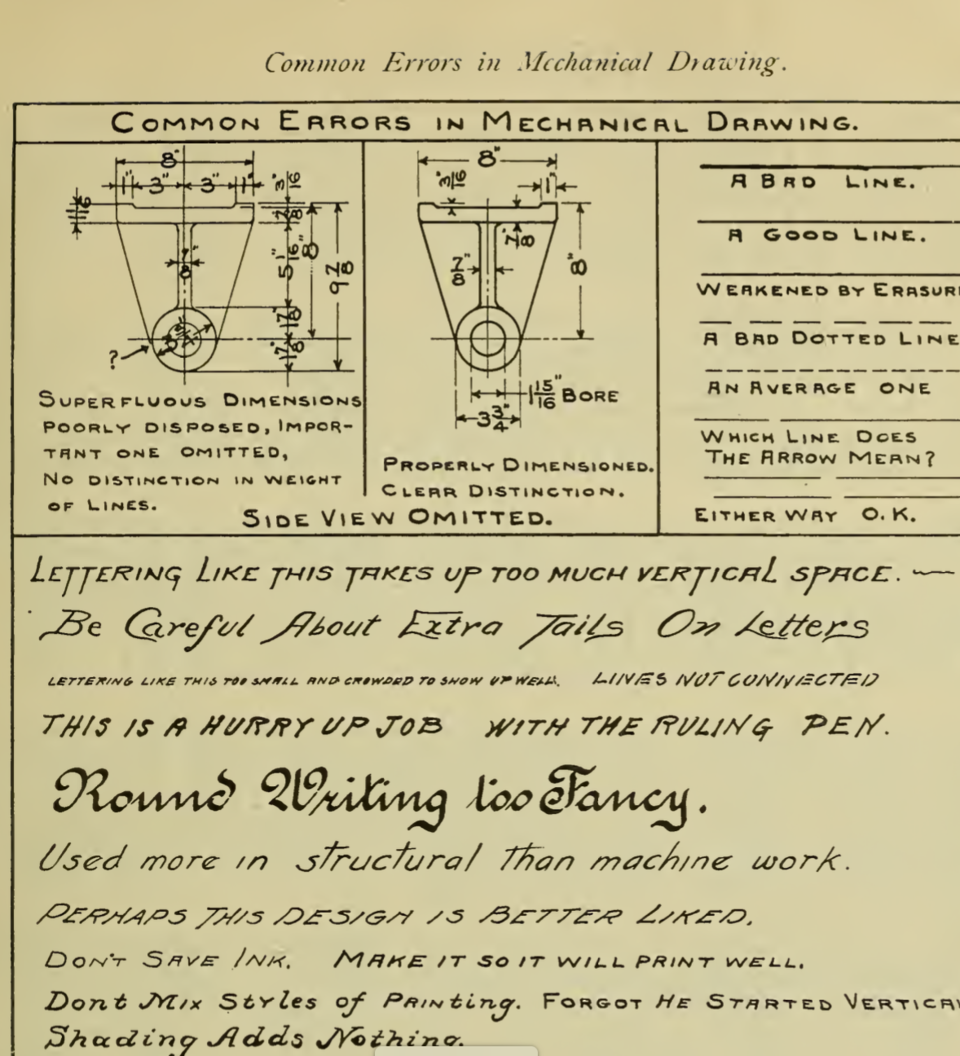 Common Errors in Mechanical Drawing.
COMMON ERRORS IN MECHANICAL DRAWING.
8"
1" 3" 3" 1"
?
SUPERFLUOUS DIMENSIONS
POORLY DISPOSED, IMPOR-
TANT ONE OMITTED,
NO DISTINCTION IN WEIGHT
OF LINES.
8"
3/16" 1"
7/8"
7/8"
8"
1 15/16" BORE
3 3/4"
PROPERLY DIMENSIONED.
CLEAR DISTINCTION.
SIDE VIEW OMITTED.
A BAD LINE.
A GOOD LINE.
WEAKENED BY
A BAD DOTTED LINE
AN AVERAGE ONE
WHICH LINE DOES
THE ARROW MEAN?
EITHER WAY O.K.
LETTERING LIKE THIS TAKES UP TOO MUCH VERTICAL SPACE.
Be Careful About Extra Tails On Letters
LETTERING LIKE THIS TOO SMALL AND CROWDED TO SHOW UP WELL. LINES NOT CONNECTED
THIS IS A HURRY UP JOB WITH THE RULING PEN.
Round Writing too Fancy.
Used more in structural than machine work.
PERHAPS THIS DESIGN IS BETTER LIKED.
DON'T SAVE INK. MAKE IT SO IT WILL PRINT WELL.
Dont Mix Styles of PRINting. FORGOT HE STARTED
Shading Adds Nothing.